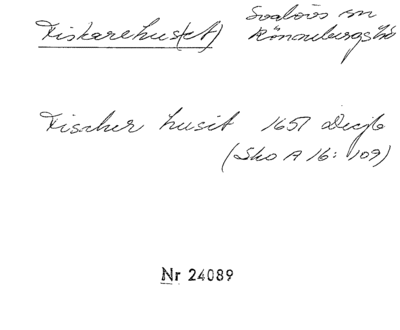 Fiskarehus(et) Svalövs sn
Rönnebergs hd
Fischer husit 1651 Decjb
(Sko A 16: 109)
Nr 24089